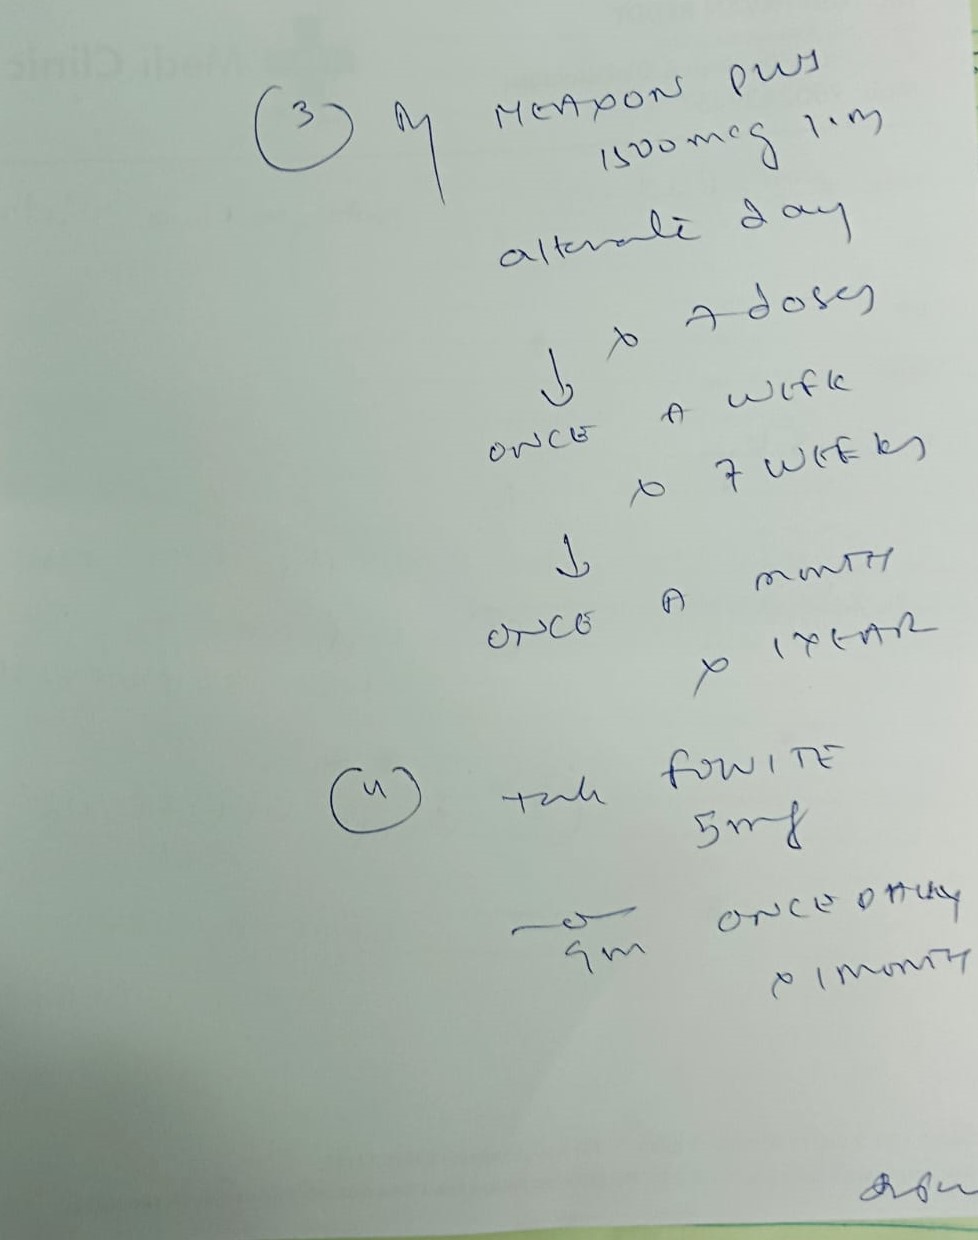 (3) Inj MEAXON PLUS
1500 mcg I.M
alternate day
x 7 doses
↓
ONCE A WEEK
x 7 WEEKS
↓
ONCE A MONTH
x 1 YEAR
(4) tab FOLVITE
5mg
9 am ONCE DAILY
x 1 MONTH